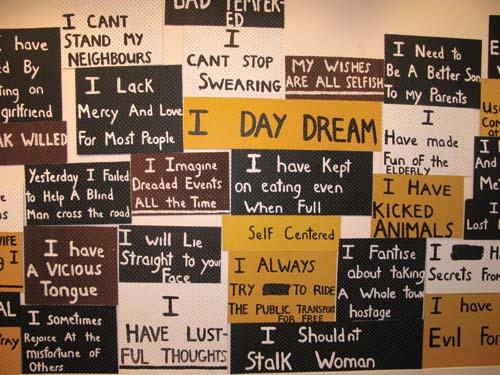 BAD TEMPER-
ED
I CANT
STAND MY
NEIGHBOURS
I
CANT STOP
SWEARING
MY WISHES
ARE ALL SELFISH
I Need to
Be A Better Son
To My Parents
I have
By
ting on
girlfriend
I Lack
Mercy And Love
For Most People
I DAY DREAM
I
Have made
Fun of the
ELDERLY
AK WILLED
Yesterday I Failed
to Help A Blind
Man cross the road
I Imagine
Dreaded Events
ALL the Time
I have Kept
on eating even
When Full
I HAVE
KICKED
ANIMALS
I
Lost
I have
A Vicious
Tongue
I will Lie
Straight to your
Face
Self Centered
I ALWAYS
TRY TO RIDE
THE PUBLIC TRANSPORT
FOR FREE
I Fantise
about taking
A Whole town
hostage
I Ha
Secrets From
WIFE
I
I Sometimes
Rejoice At the
misfortune of
Others
I
HAVE LUST-
FUL THOUGHTS
I Shouldnt
Stalk Woman
I have
Evil For
AL
RAY